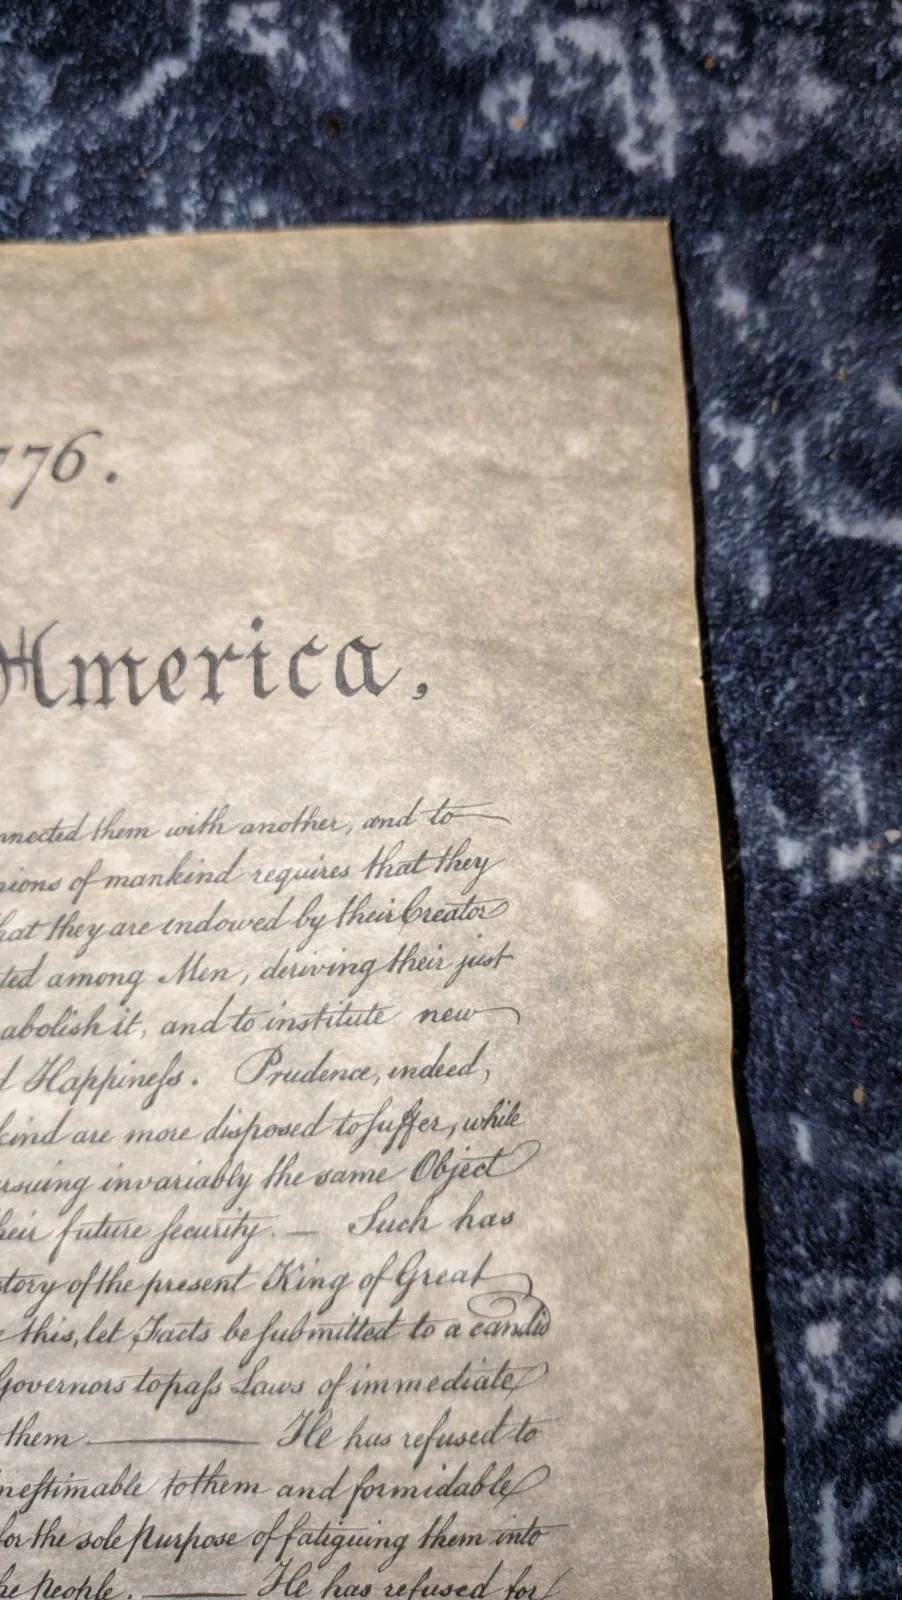 776.
America,
nnected them with another, and to
nions of mankind requires that they
hat they are endowed by their Creator
ted among Men, deriving their just
abolish it, and to institute new
d Happineſs. Prudence, indeed,
kind are more disposed to ſuffer, while
rsuing invariably the same Object
heir future ſecurity. — Such has
story of the present King of Great
e this, let Facts be ſubmitted to a candid
Governors to paſs Laws of immediate
them ——— He has refused to
neſtimable to them and formidable
for the sole purpose of fatiguing them into
he people. ——— He has refused for